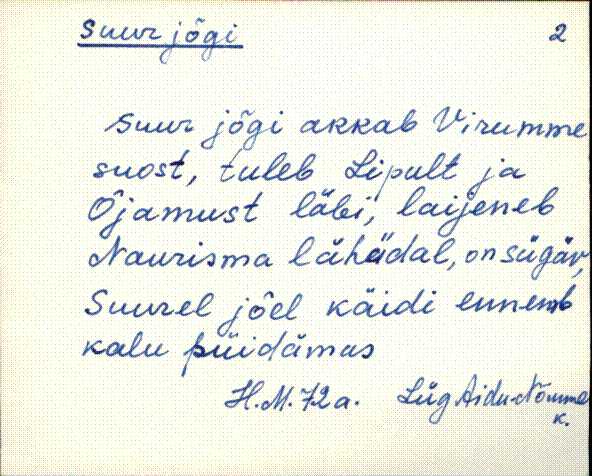 Suur jõgi 2
Suur jõgi akkab Virumme
suost, tuleb Lipult ja
Ojamust läbi, laijeneb
Naurisma lähädal, on sügäv,
Suurel jõel käidi ennemb
kalu püidämas
H.M. 72 a. Lüg Aidu-Nõmme
k.